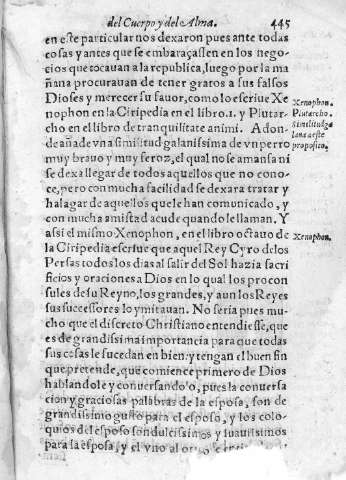 del Cuerpo y del Alma. 445
en este particular nos dexaron pues ante todas
cosas y antes que se embaraçassen en los nego-
cios que tocauan a la republica, luego por la ma
ñana procurauan de tener gratos a sus falsos
Dioses y merecer su fauor, como lo escriue Xe
nophon en la Ciripedia en el libro. 1. y Plutar-
cho en el libro de tranquilitate animi. A don-
de añade vna similitud galanissima de vn perro
muy brauo y muy feroz, el qual no se amansa ni
se dexa llegar de todos aquellos que no cono-
ce, pero con mucha facilidad se dexara tratar y
halagar de aquellos que le han comunicado, y
con mucha amistad acude quando le llaman. Y
assi el mismo Xenophon, en el libro octauo de
la Ciripedia escriue que aquel Rey Cyro de los
Persas todos los dias al salir del Sol hazia sacri
ficios y oraciones a Dios en lo qual los procon
sules de su Reyno, los grandes, y aun los Reyes
sus successores lo ymitauan. No seria pues mu-
cho que el discreto Christiano entendiesse, que
es de grandissima importancia para que todas
sus cosas le sucedan en bien: y tengan el buen fin
que pretende, que comience primero de Dios
hablandole y conuersando'o, pues la conuersa
cion y graciosas palabras de la esposa, son de
grandissimo gusto para el esposo, y los colo-
quios del esposo son dulcissimos y suauissimos
para la esposa, y el vno al
Xenophon.
Plutarcho.
Similitud ga
lana a este
proposito.
Xenophon.